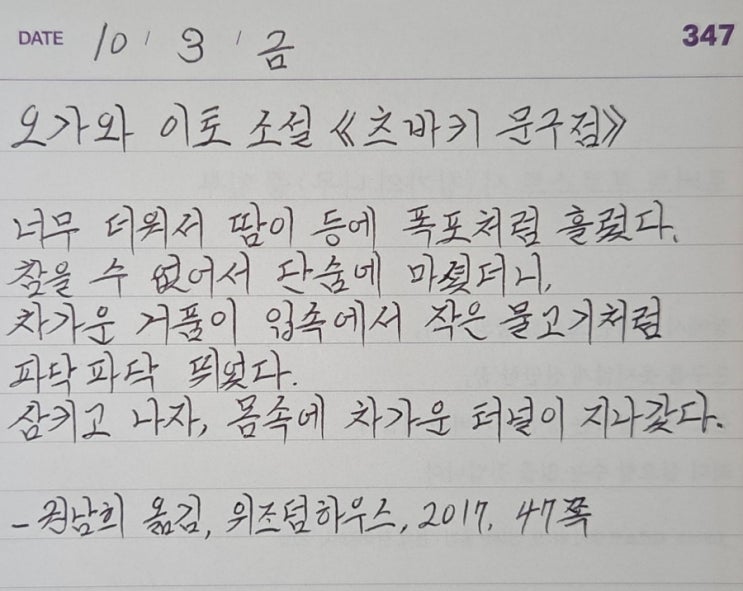 DATE 10 / 3 / 금 347
오가와 이토 소설 《츠바키 문구점》
너무 더워서 땀이 등에 폭포처럼 흘렀다.
참을 수 없어서 단숨에 마셨더니,
차가운 거품이 입속에서 작은 물고기처럼
파닥파닥 뛰었다.
삼키고 나자, 몸속에 차가운 터널이 지나갔다.
- 권남희 옮김, 위즈덤하우스, 2017, 47쪽